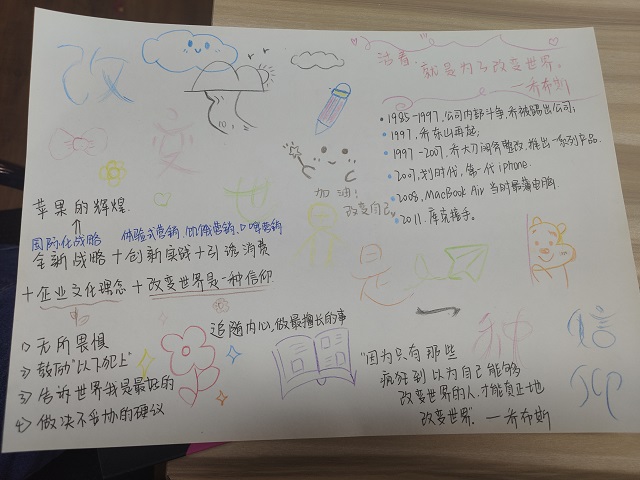 改
变
世
界
是
一
种
信
仰
活着,
就是为了改变世界。
—乔布斯
• 1985-1997,公司内部斗争,乔被踢出公司;
• 1997,乔东山再起;
• 1997-2007,乔大刀阔斧整改,推出一系列产品.
• 2007,划时代,第一代iphone.
• 2008,MacBook Air 当时最薄电脑.
• 2011,库克接手。
加油!
改变自己。
苹果的辉煌.
国际化战略 体验式营销,饥饿营销,口碑营销
全新战略+创新实践+引诱消费
+企业文化理念+改变世界是一种信仰.
1) 无所畏惧
2) 鼓励“以下犯上”
3) 告诉世界我是最好的
4) 做决不妥协的硬汉
追随内心,做最擅长的事
“因为只有那些
疯狂到以为自己能够
改变世界的人,才能真正地
改变世界.” —乔布斯